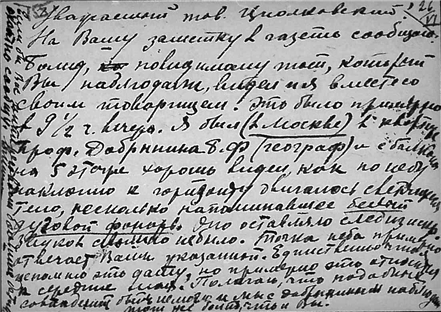 Уважаемый тов. Циолковский! 26
VI
На Вашу заметку в газеты сообщаю.
Болид, по видимому тот, который
Вы наблюдали, видел и я вместе со
своим товарищем! Это было примерно
в 9½ г. вечера. Я был (в Москве) в квартире
проф. Добрынина Б.Ф (географ) и с балкона
на 5 этаже хорошо видел, как по небу
наклонно к горизонту двигалось светящееся
тело, несколько напоминавшее белый
дуговой фонарь. Оно оставляло след из искр.
Звуков слышно не было. Точка неба примерно
отвечает Вами указанной. Единственно что не
успомню это дату, но примерно это относится
к середине мая. Полагаю, что подобные
совпадений быть не может и мы с Добрыниным наблюдали
тот же болид, что и Вы.